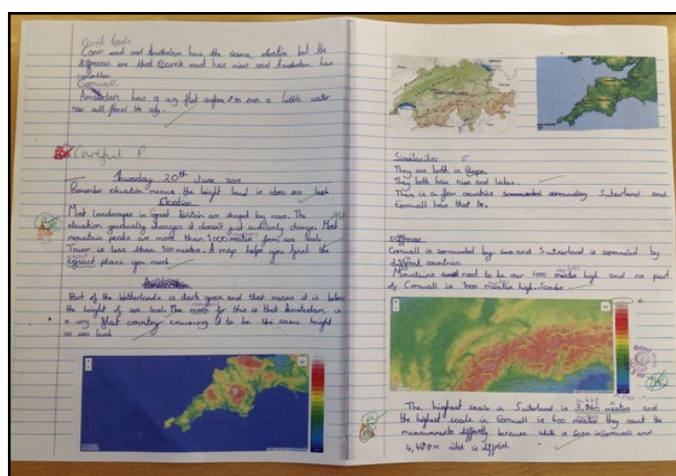 Carrik Roads
Carrik road and Amsterdam have the same elevation but the
differences are that Carrik road has rivers and Amsterdam has
Cornwall.
Amsterdam has a very flat surface so even a little water
rise will flood the city.
Careful P.
Thursday 20th June
Remember elevation means the height land is above sea level
Elevation
Most landscapes in Great Britain are shaped by rivers. The
elevation gradually changes it doesn't just suddenly change. Most
mountain peaks are more than 1000 metres from sea level.
Truro is less than 100 metres. A map helps you find the
places you need
Part of the Netherlands is dark green and that means it is below
the height of sea level. The reason for this is that Amsterdam is
a very flat country it to be the same height
as sea level
SWITZERLAND
Similarities
They are both in Europe.
They both have rivers and lakes.
There is a few countries surrounding Switzerland and
Cornwall have that to.
Difference
Cornwall is surrounded by sea and Switzerland is surrounded by
different countries.
Mountains need to be over 1000 metres high and no part
of Cornwall is 1000 metres high. Scale
The highest scale in Switzerland is metres and
the highest scale in Cornwall is 400 metres they count the
measurements differently because white is in Cornwall and
in is different.